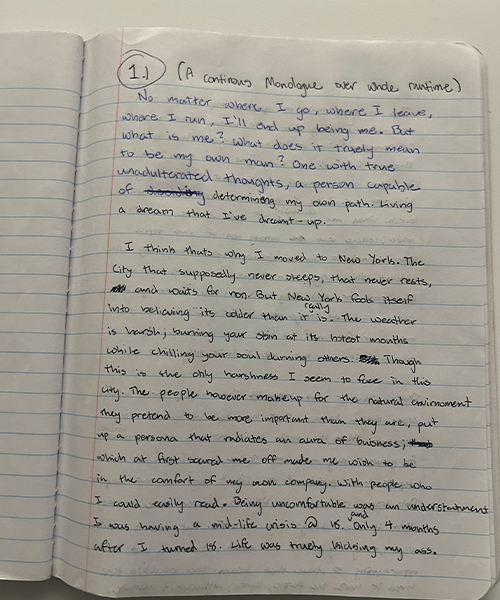 1.1 (A continous Monologue over whole runtime)
No matter where I go, where I leave,
where I run, I'll end up being me. But
what is me? What does it truely mean
to be my own man? One with true
unadulterated thoughts, a person capable
of determining my own path. Living
a dream that I've dreamt-up.
I think thats why I moved to New York. The
City that supposedly never sleeps, that never rests,
and waits for non. But New York fools itself
into believing its colder than it really is. The weather
is harsh, burning your skin at its hotest months
while chilling your soul durning others. Though
this is the only harshness I seem to face in this
city. The people however makeup for the natural enviroment
they pretend to be more important than they are, put
up a persona that radiates an aura of buisness;
which at first scared me off made me wish to be
in the comfort of my own company. With people who
I could easily read. Being uncomfortable was an understatement
I was having a mid-life crisis @ 18. and Only 4 months
after I turned 18. Life was truely kicking my ass.